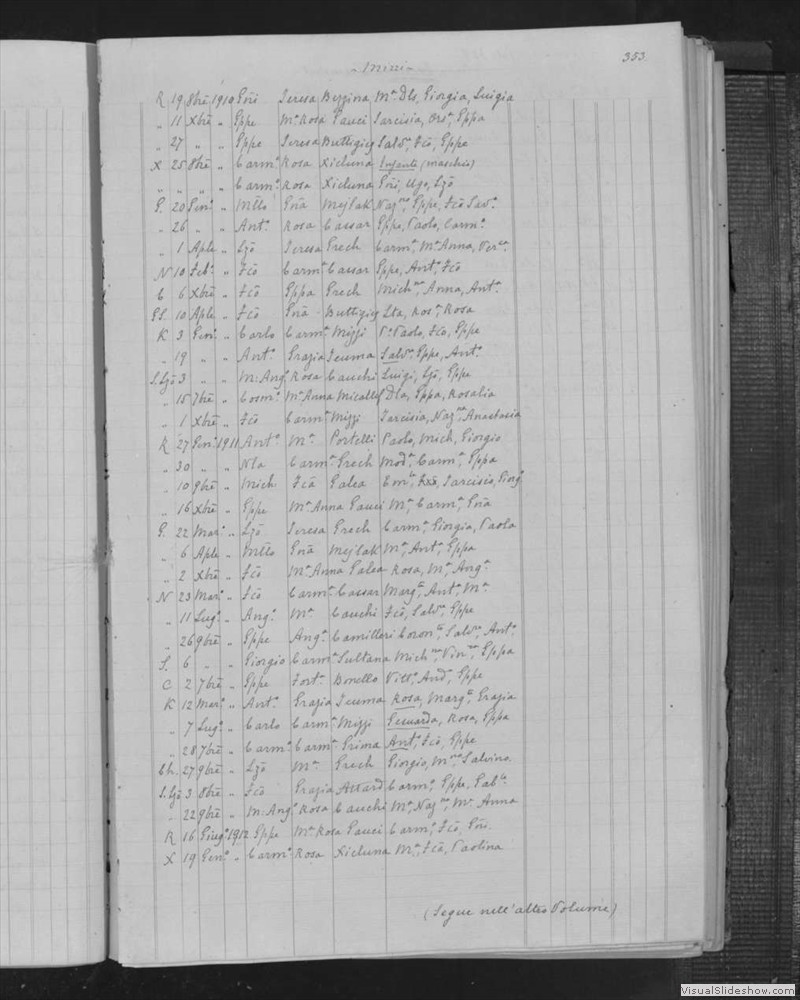 353
- Mizzi -
R 19 8bre 1910 Gni Teresa Bezzina Ma Dls, Giorgia, Luigia
" 11 Xbre " Gppe Ma Rosa Gauci Tarcisia, Orsa, Gppa
" 27 " " Gppe Teresa Buttigieg Salvr, Fco, Gppe
X 25 8bre " Carmo Rosa Xicluna Infante (maschio)
" " " " Carmo Rosa Xicluna Gni, Ugo, Lzo
G. 20 Geno " Mllo Gna Mejlak Naz, Gppe, Fco Savo
" 26 " " Anto Rosa Cassar Gppe, Paolo, Carmo
" 1 Aple " Lzo Teresa Grech Carma, Ma Anna, Verca
N 10 Feb " Fco Carma Cassar Gppe, Anto, Fco
C 6 Xbre " Fco Gppa Grech Micha, Anna, Anta
10 Aple " Fco Gna Buttigieg Lta, Rosa, Rosa
K 3 Geno " Carlo Carma Mizzi Paolo, Fco, Gppe
" 19 " " Anto Grazia Scuma Salvr, Gppe, Anto
S.Lzo 3 " " M: Ango Rosa Cauchi Luigi, Lzo, Gppe
" 15 7bre " Cosmo Ma Anna Micallef Dla, Gppa, Rosalia
" 1 Xbre " Fco Carma Mizzi Tarcisia, Naza, Anastasia
R 27 Geno 1911 Anto Ma Portelli Paolo, Mich, Giorgio
" 30 " " Nla Carma Grech Moda, Carma, Gppa
" 10 9bre " Mich Fca Galea Tarcisio, Giorg
" 16 Xbre " Gppe Ma Anna Gauci Ma, Carma, Gna
G. 22 Marzo " Lzo Teresa Grech Carma, Giorgia, Paola
" 6 Aple " Mllo Gna Mejlak Ma, Anta, Gppa
" 2 Xbre " Fco Ma Anna Galea Rosa, Ma, Anga
N 23 Marzo " Fco Carma Cassar Marga, Anta, Ma
" 11 Lugo " Ango Ma Cauchi Fco, Salvr, Gppe
" 26 9bre " Gppe Anga Camilleri Corona, Salva, Anta
S. 6 " " Giorgio Carma Sultana Micha, Vinca, Gppa
C 2 7bre " Gppe Forta Bonello Vitto, Anda, Gppe
K 12 Marzo " Anto Grazia Scuma Rosa, Marga, Grazia
" 7 Lugo " Carlo Carma Mizzi Genuarda, Rosa, Gppa
" 28 7bre " Carmo Carma Grima Anto, Fco, Gppe
Ch. 27 9bre " Lzo Ma Grech Giorgio, Salvino
S.Lzo 3 8bre " Fco Grazia Attard Carmo, Gppe, Gable
" 22 9bre " M: Ango Rosa Cauchi Ma, Naza, Ma Anna
R 16 Giugo 1912 Gppe Ma Rosa Gauci Carmo, Fco, Gni
X 19 Geno " Carmo Rosa Xicluna Ma, Fca, Paolina
(Segue nell'altro Volume)
VisualSlideshow.com